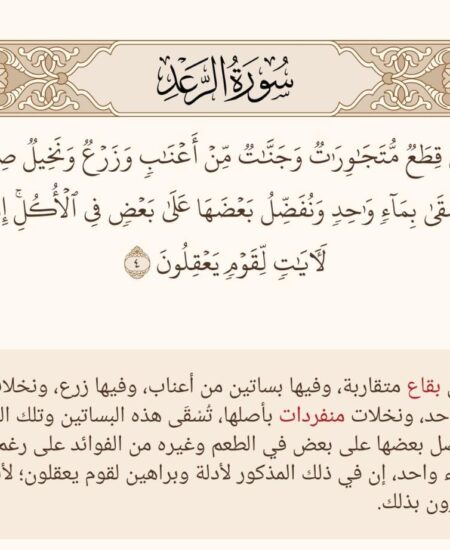 سُورَةُ الرَّعۡدِ
قِطَعٞ مُّتَجَٰوِرَٰتٞ وَجَنَّٰتٞ مِّنۡ أَعۡنَٰبٖ وَزَرۡعٞ وَنَخِيلٞ
بِمَآءٖ وَٰحِدٖ وَنُفَضِّلُ بَعۡضَهَا عَلَىٰ بَعۡضٖ فِي ٱلۡأُكُلِۚ
لَأٓيَٰتٖ لِّقَوۡمٖ يَعۡقِلُونَ ٤
بقاع متقاربة، وفيها بساتين من أعناب، وفيها زرع،
ونخلات منفردات بأصلها، تُسْقَى هذه البساتين وتلك
بعضها على بعض في الطعم وغيره من الفوائد على رغم
واحد، إن في ذلك المذكور لأدلة وبراهين لقوم يعقلون؛
بذلك.